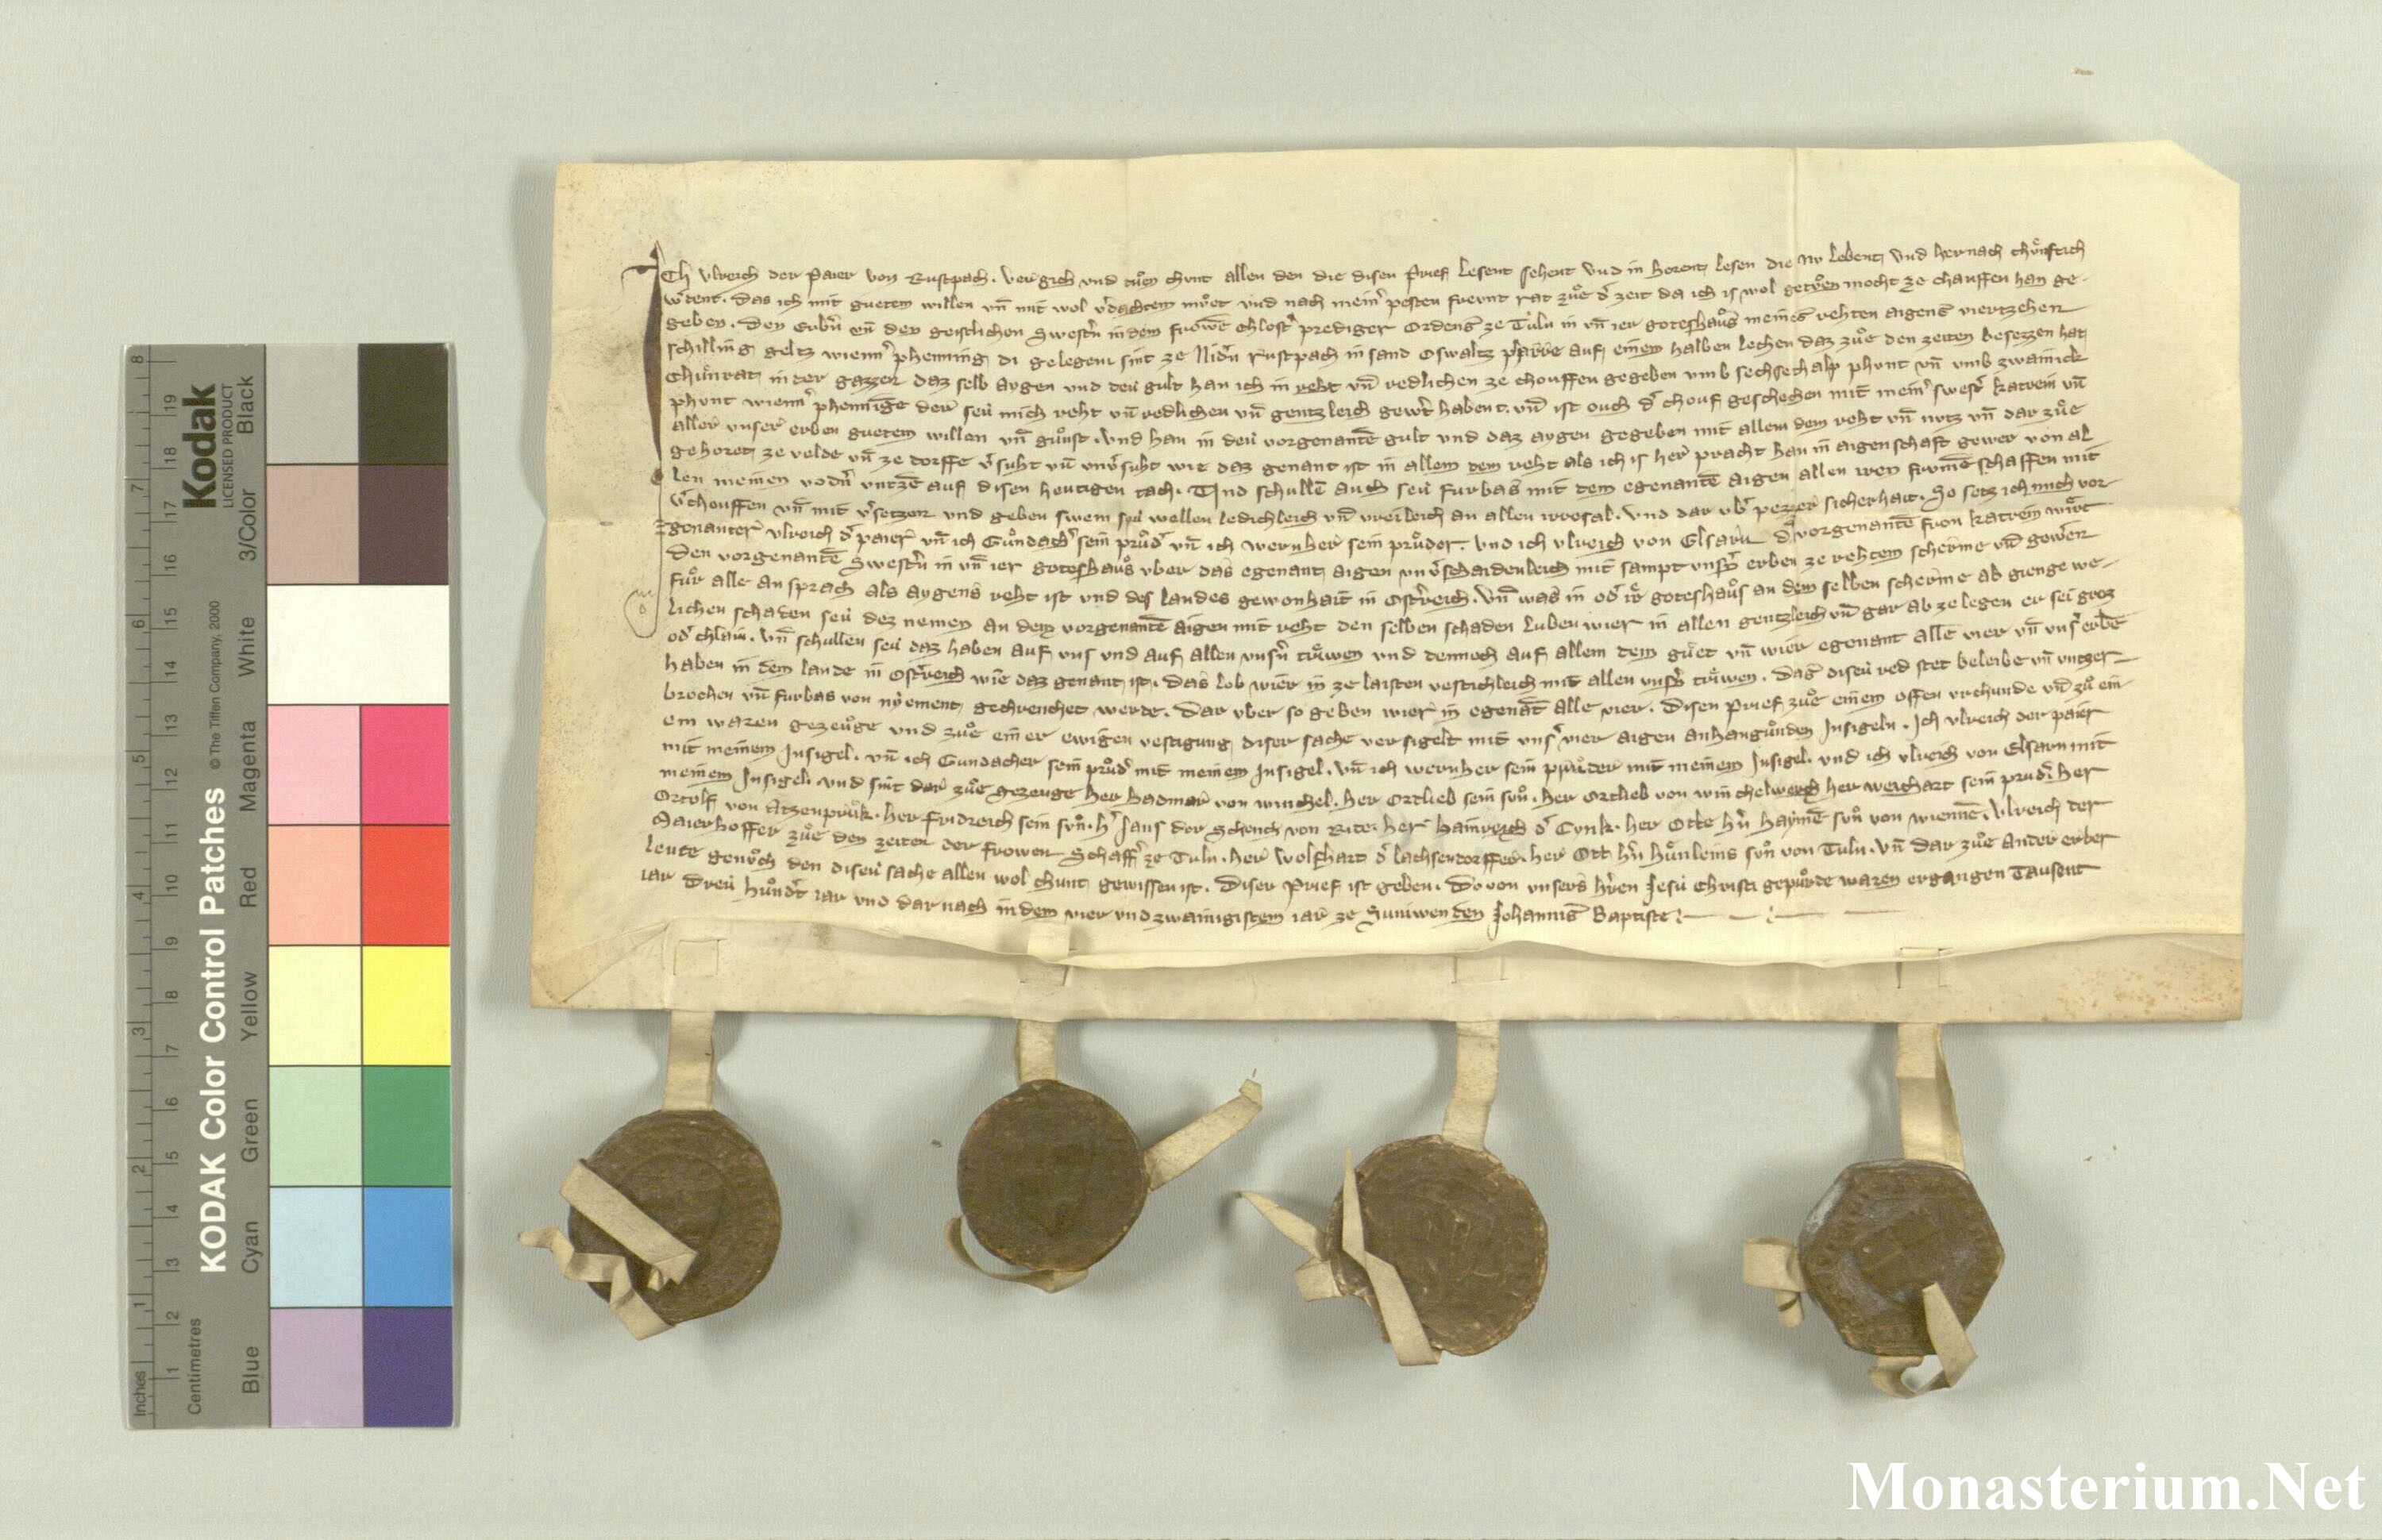 Ich Vlreich der Paier von Rustpach. vergich vnd tuͦn chunt allen den die disen Prief lesent sehent vnd in horent lesen die nv lebent vnd hernach chuͤnftich
w'dent. Das ich mit guetem willen vn̄ mit wol v'dachtem muͦet vnd nach mein' pesten freunt rat zuͦe d' zeit da ich is wol getuͦen mocht ze chauffen han ge-
geben. Den Erb'n vn̄ den geistlichen Swest'n in dem frowē chlost' prediger Ordens ze Tuln in vn̄ ier goteshaus meines rehten aigens viertzehen
schilling geltz wienn' phenning di gelegen sint ze Nid'n Rustpach in sand Oswaltz pfarre auf einem halben lechen daz zuͦe den zeiten besezzen hat
Chuͦnrat in der gazzen daz selb aygen vnd deu gult han ich in reht vn̄ redlichen ze chouffen gegeben vmb sechsthalp phunt vn̄ vmb zwainick
phunt wienn' phennige der seu mich reht vn̄ redlichen vn̄ gentzleich gew't habent. vn̄ ist ouch d' chouf geschechen mit mein' swest' katrein vn̄
aller vnser erben guetem willen vn̄ guͦnst. vnd han in deu vorgenantē gult vnd daz aygen gegeben mit allem dem reht vn̄ nutz vn̄ dar zuͦe
gehoret ze velde vn̄ ze dorffe v'suht vn̄ vnv'suht wie daz genant ist in allem dem reht als ich is her pracht han in aigenschaft gewer von al
len meinen vod'n vntzē auf disen heutigen tach. Vnd schullē auch seu furbas mit dem egenantē aigen allen iren frumē schaffen mit
v'chouffen vn̄ mit v'setzen vnd geben swem seu wellen ledichleich vn̄ vreileich an allen irresal. vnd dar vb' pezzer sicherhait. So setz ich mich vor
genanter vlreich d' paier vn̄ ich Guͦndach' sein pruͦd' vn̄ ich wernher sein pruͦder. vnd ich vlreich von Elsarn d' vorgenantē fron katrein wirt
Den vorgenantē Swest'n in vn̄ ier goteshaus vber das egenant aigen vnv'schaidenleich mit sampt vns'n erben ze rehtem scherme vn̄ gew'en
fuͤr alle ansprach als aygens reht ist vnd des landes gewonhait in Ost'reich. vn̄ was in od' ir goteshaus an dem selben scherme ab gienge we-
lichen schaden seu dez nemen an dem vorgenantē aigen mit reht den selben schaden luben wier in allen gentzleich vn̄ gar ab ze legen er sei groz
od' chlain. vn̄ schullen seu daz haben auf vns vnd auf allen vns'n triwen vnd dennoch auf allem dem guͤet vn̄ wier egenant alle vier vn̄ vns' erbē
haben in dem lande in Ost'reich wie daz genant ist. Das lob wier in ze laisten vestichleich mit allen vns'n triwen. Das diseu red stet beleibe vn̄ vntzer-
brochen vn̄ furbas von nyement gechrenchet werde. Dar vber so geben wier in egenāt alle vier. Disen Prief zuͦe einem offen vrchunde vn̄ zuͦ ein
em waren gezeuge vnd zuͦe einer ewigen vestigung diser sache versigelt mit vns' vier aigen anhanguͦnden Insigeln. Ich vlreich der paier
mit meinem Insigel. vn̄ ich Gundacher sein pruͦd' mit meinem Insigel. vn̄ ich wernher sein pruͦder mit meinem Insigel. vnd ich vlreich von Elsarn mit
meinem Insigel. vnd sint dar zuͦe gezeuge her hadmar von winchel. her Ortlieb sein suͦn. her Ortlieb von winchel her weichart sein prud'. her
Ortolf von Atzenpruk. her fridreich sein suͦn. h' Jans der Schench von Ritt. her hainreich d' Cunk. her Otte h'n haymē suͦn von wiennē. Vlreich der
Maierhoffer zuͦe den zeiten der frowen Schaff' ze Tuln. her wolfhart d' lachsendorffer. her Ott h'n huͦnleins suͦn von Tuln. vn̄ dar zuͦe ander erber
leute genuͦch den diseu sache allen wol chunt gewissen ist. Diser Prief ist geben. Do von vnsers h'ren Jesu Christi gepuͦrde waren ergangen Tausent
iar dreu huͦnd't iar vnd dar nach in dem vier vnd zwainigistem iar ze Suniwenden Johannis Baptiste
KODAK Color Control Patches
© The Tiffen Company, 2000
Kodak
LICENSED PRODUCT
Inches 1 2 3 4 5 6 7 8
Centimetres 1 2 3 4 5 6 7 8 9 10 11 12 13 14 15 16 17 18 19
Blue Cyan Green Yellow Red Magenta White 3/Color Black
Monasterium.Net